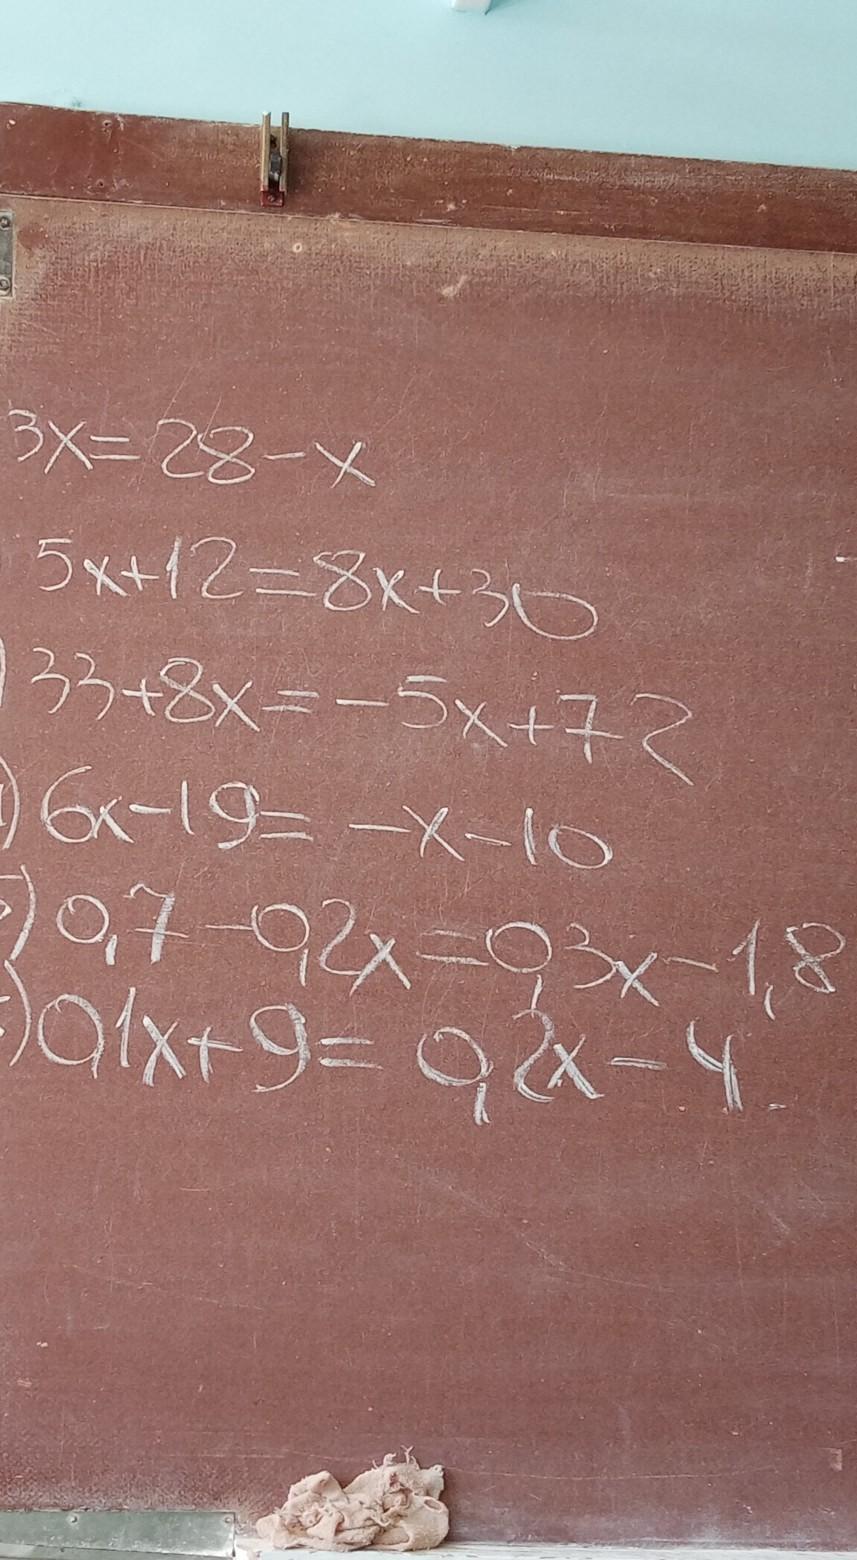 3x=28-x
5x+12=8x+30
) 33+8x=-5x+72
) 6x-19=-x-10
) 0,7-0,2x=0,3x-1,8
) 0,1x+9=0,2x-4.